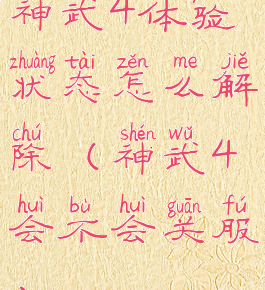 神武4体验
zhuàng tài zěn me jiě
状态怎么解
chú shén wǔ
除(神武4
huì bù huì guān fú
会不会关服